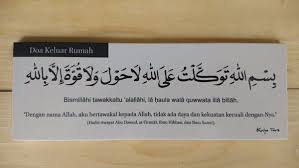 Doa Keluar Rumah
بِسْمِ اللهِ تَوَكَّلْتُ عَلَى اللهِ لَا حَوْلَ وَلَا قُوَّةَ إِلَّا بِاللهِ
Bismillâhi tawakkaltu 'alallâhi, lâ haula walâ quwwata illâ billâh.
"Dengan nama Allah, aku bertawakal kepada Allah, tidak ada daya dan kekuatan kecuali dengan-Nya."
(Hadis riwayat Abu Dawud, at-Tirmidzi, Ibnu Hibban, dan Ibnu Sunni).